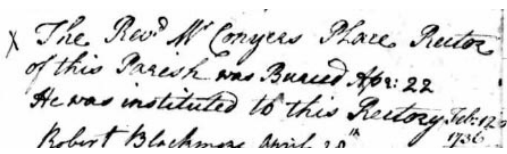 X The Revd Mr Conyers Place Rector
of this Parish was Buried Apr: 22
He was instituted to this Rectory Feb: 12
1736
Robert Blackmore April 28th